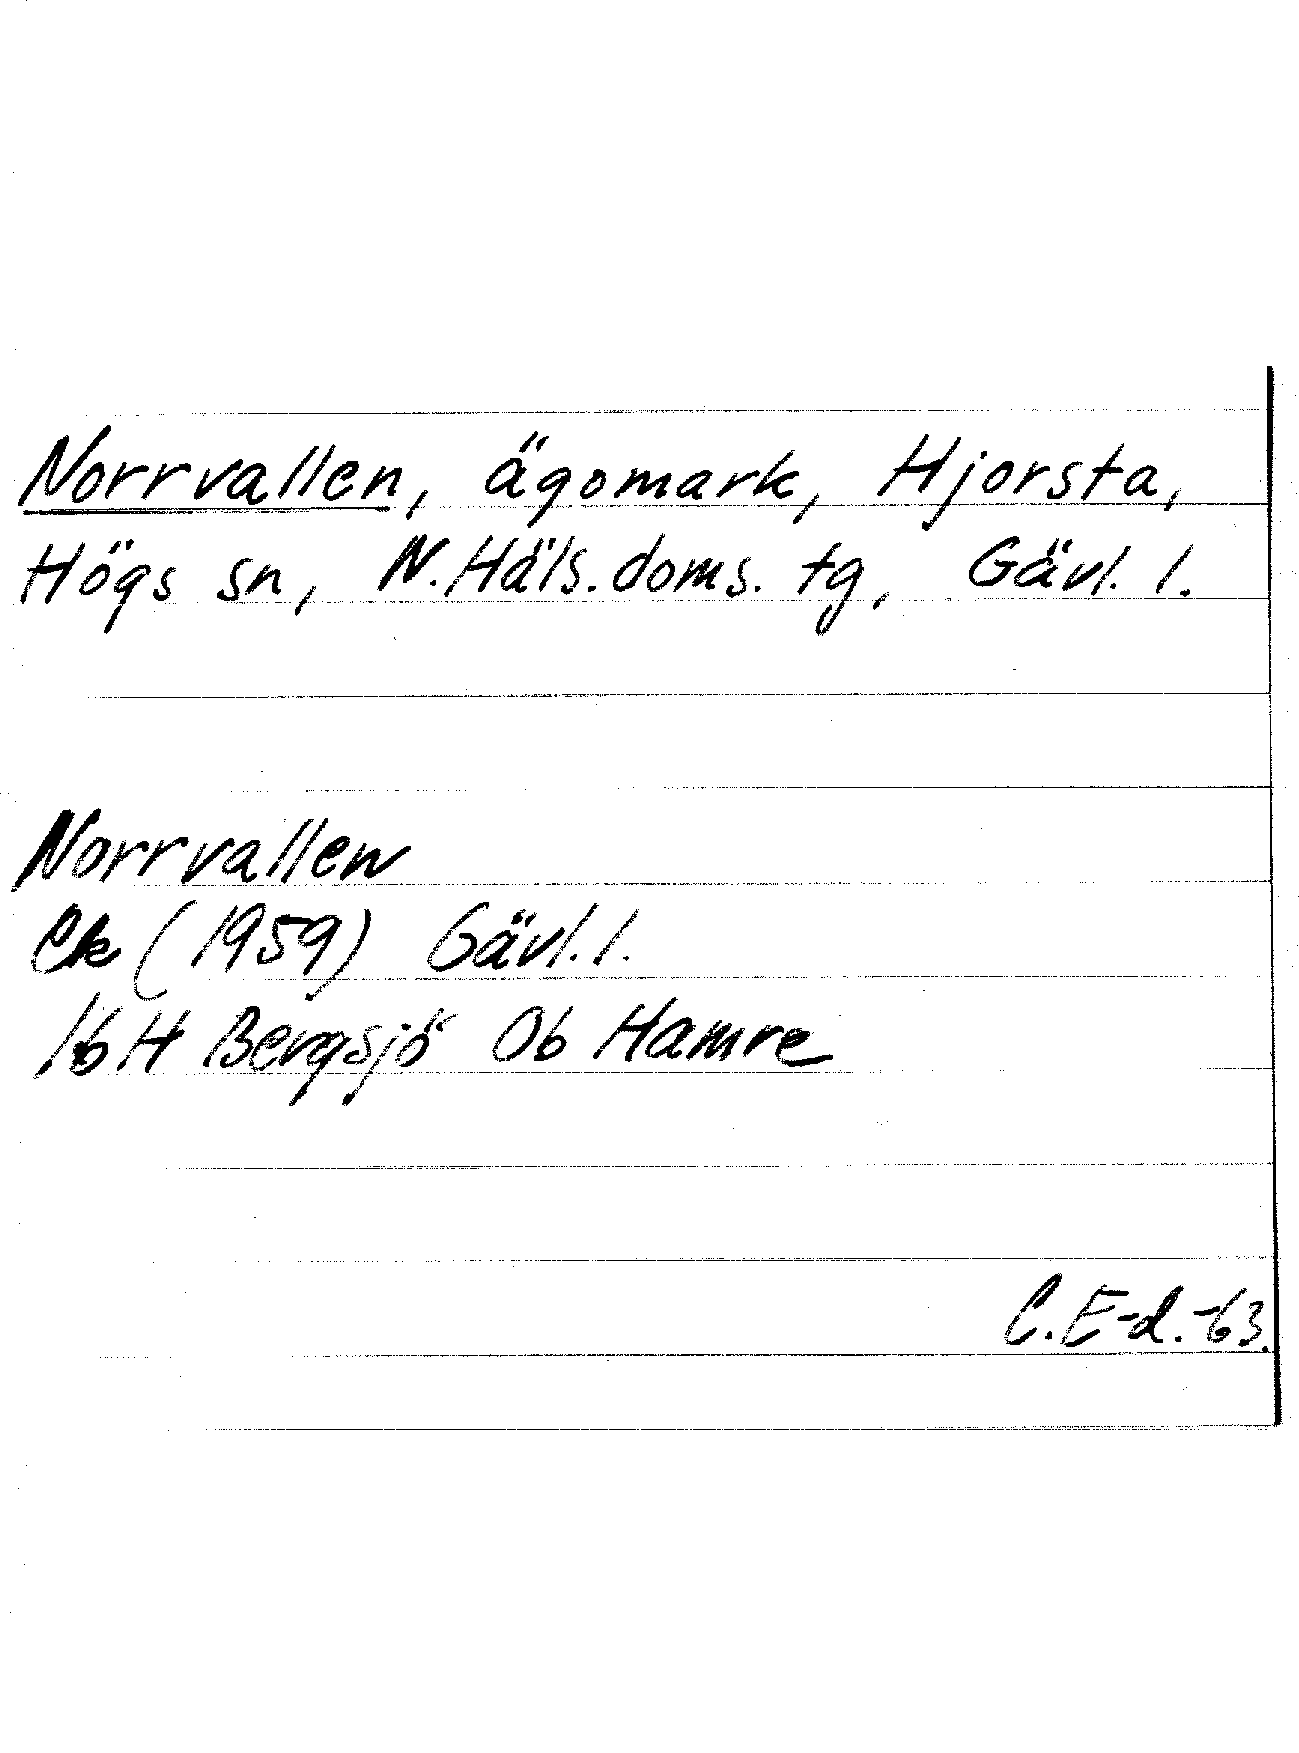 Norrvallen, ägomark, Hjorsta,
Högs sn, N. Häls. doms. tg, Gävl. l.
Norrvallen
Ek (1959) Gävl. l.
16 H Bergsjö Ob Hamre
C. E-d. -63.